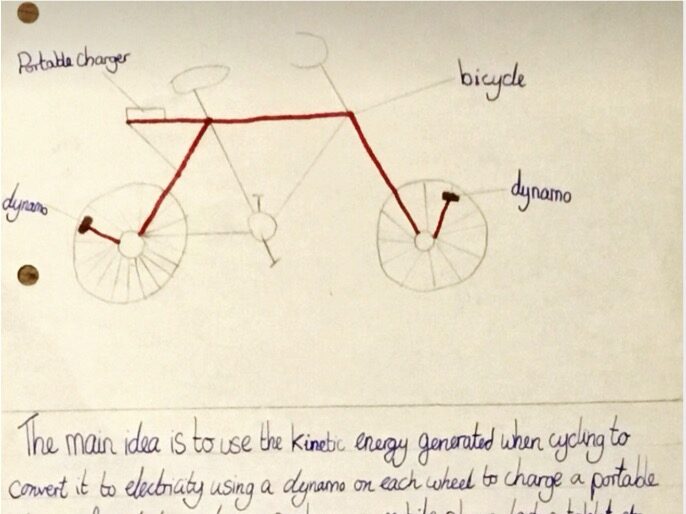 Portable charger
bicycle
dynamo
dynamo
The main idea is to use the kinetic energy generated when cycling to
convert it to electricity using a dynamo on each wheel to charge a portable